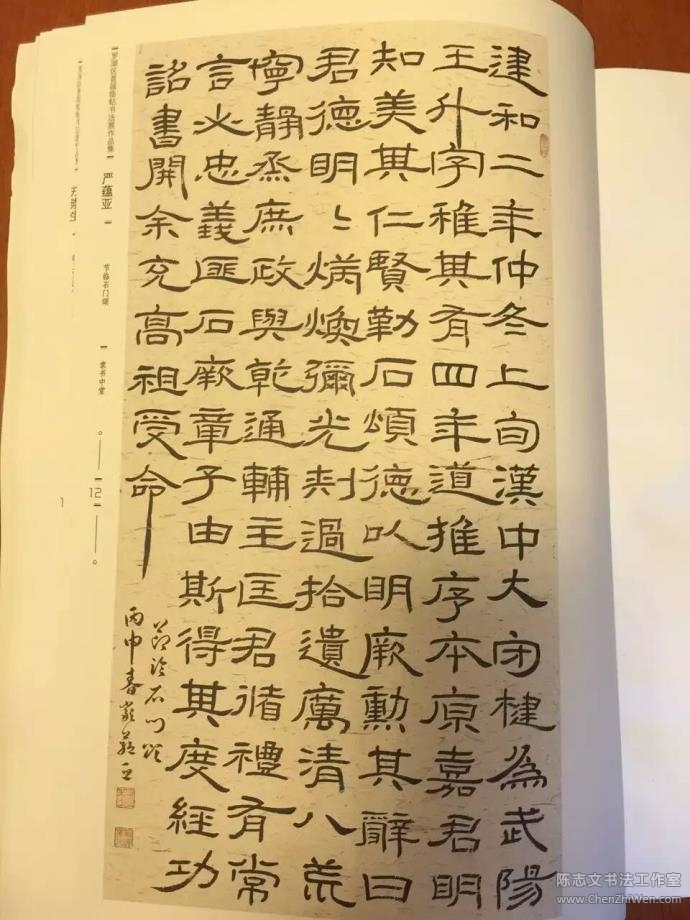 建和二年仲冬上旬漢中大守楗為武陽
王升字稚其有四年道推序本原嘉君明
知美其仁賢勒石頌德以明厥勳其辭曰
君德明〻炳煥彌光刺過拾遺厲清八荒
寧静烝庶政與乾通輔主匡君循禮有常
言必忠義匪石厥章子由斯得其度經功
詔書開余充高祖受命
節臨石門頌
丙申春嚴蘊亞
严蕴亚
节临石门颂
隶书中堂
12
陈志文书法工作室
www.ChenZhiWen.com